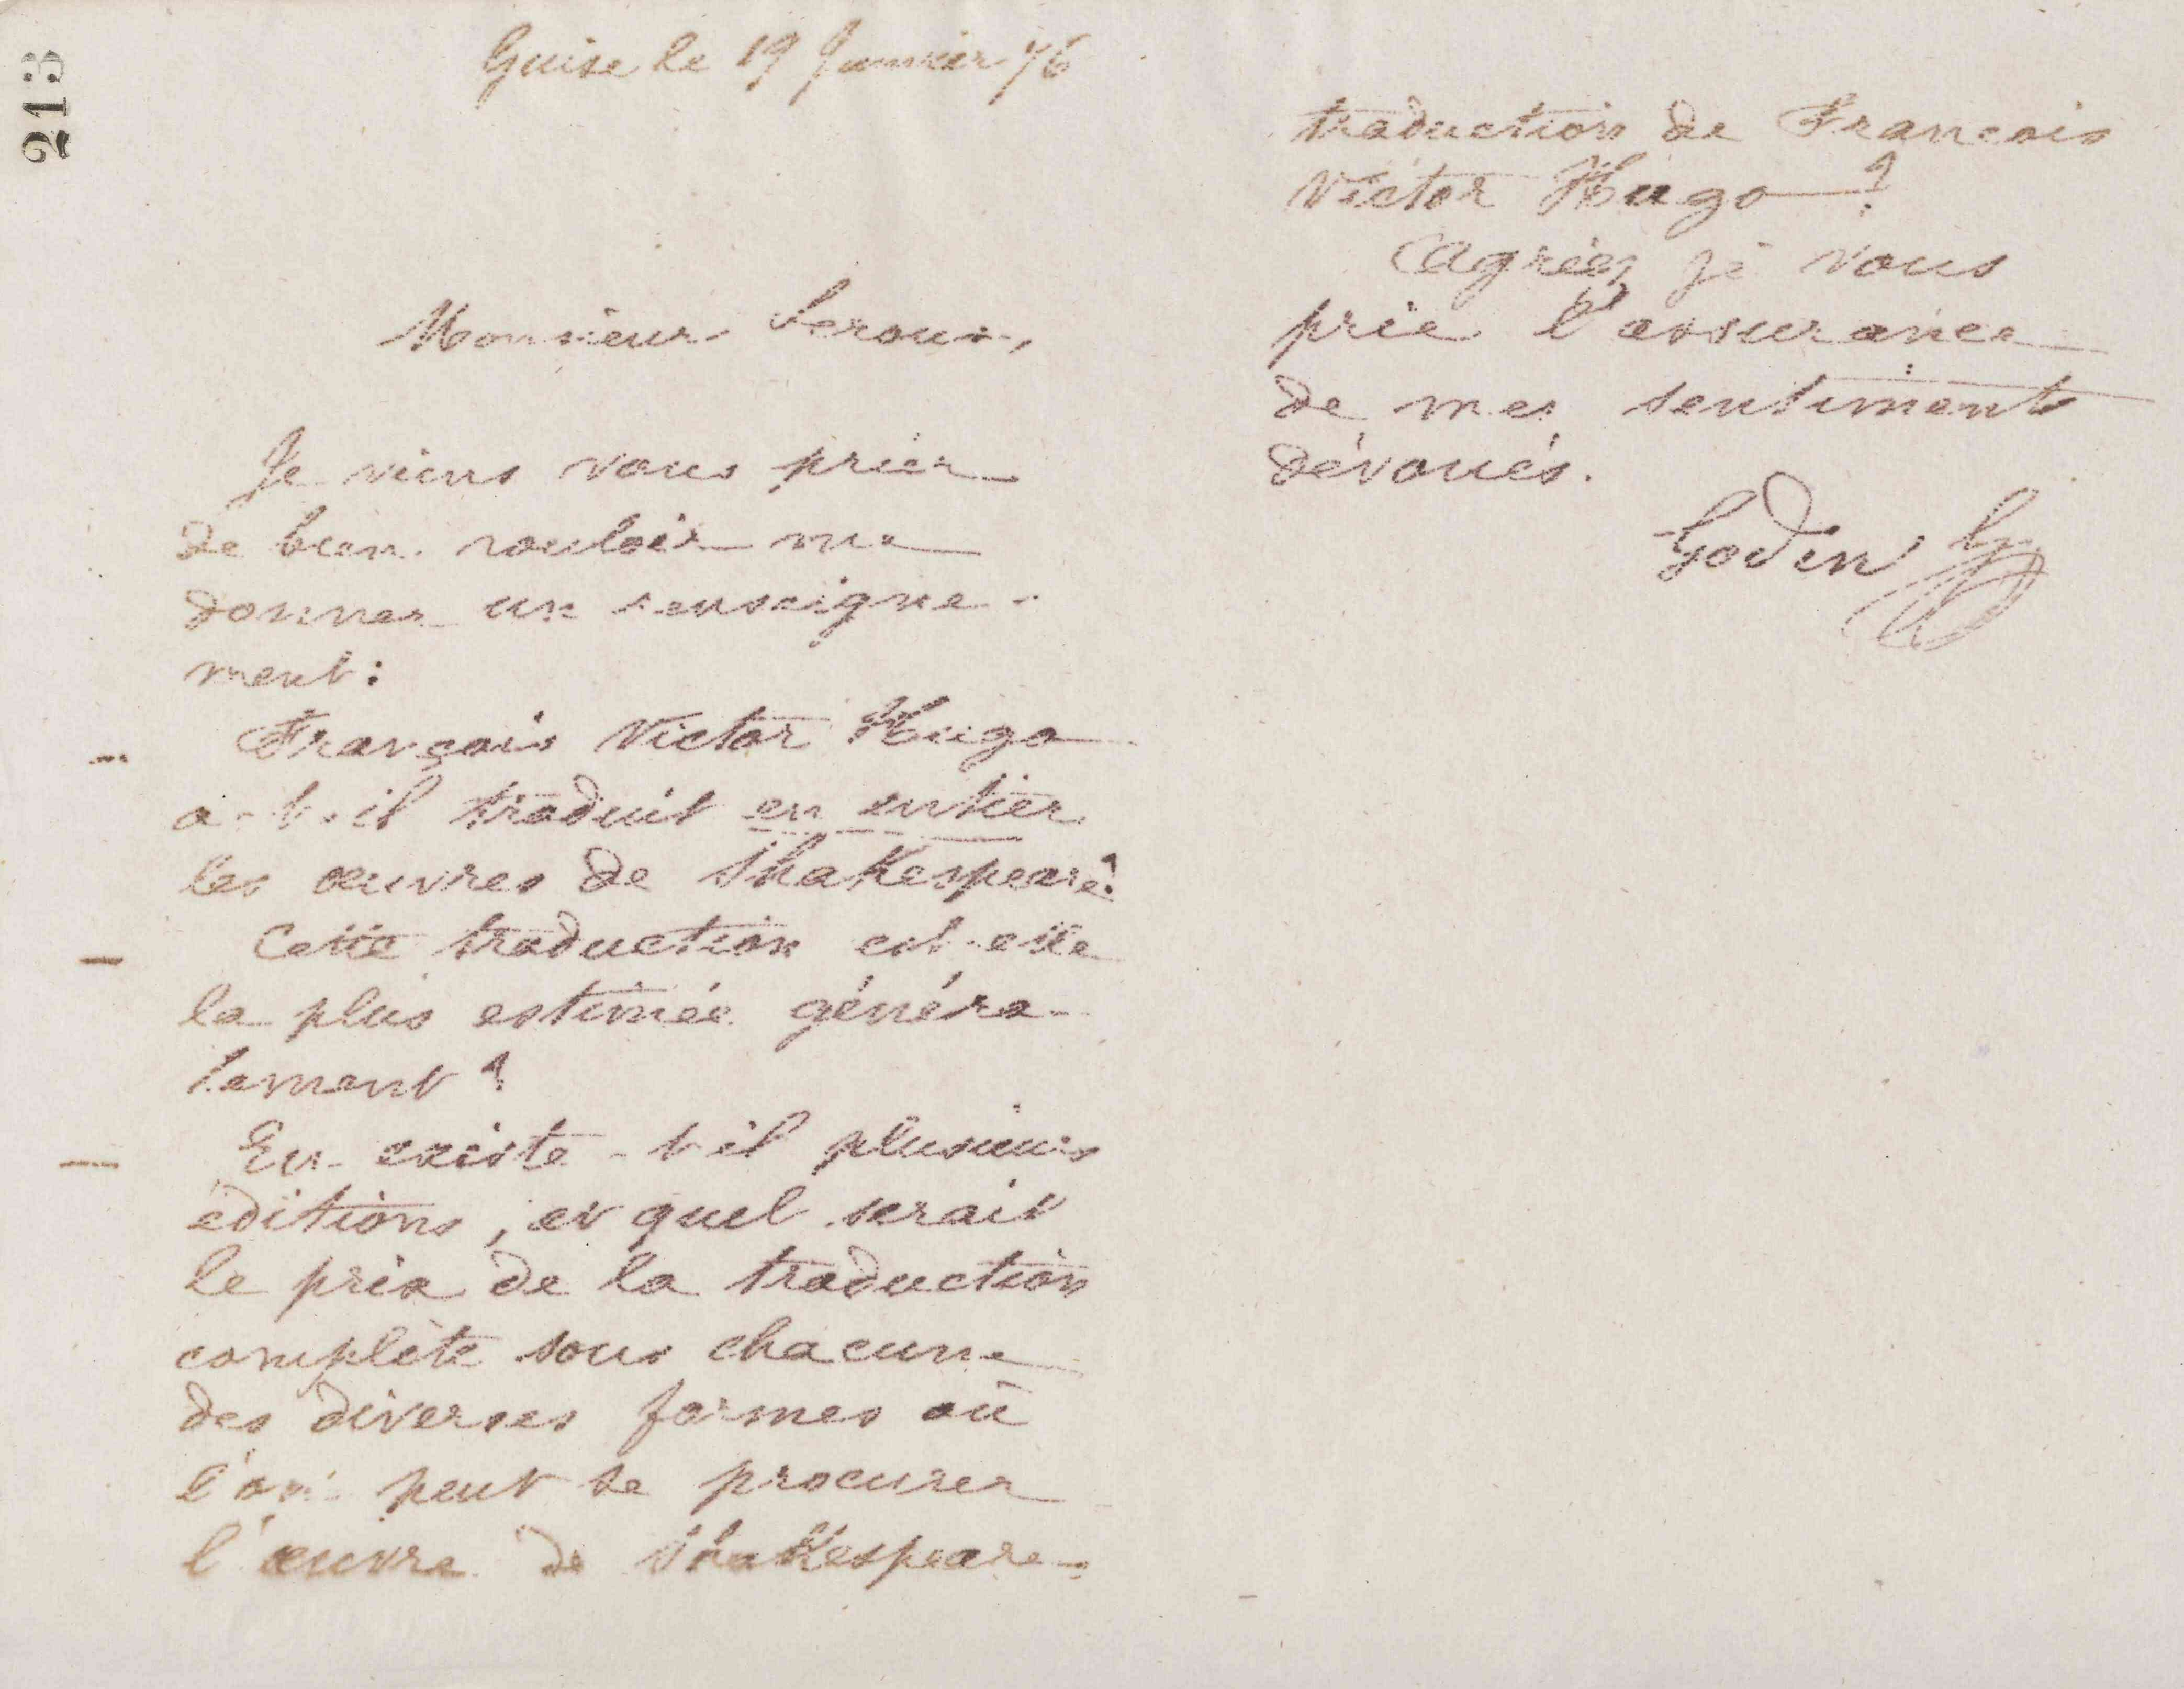 213
Guise le 19 Janvier 76
Monsieur Leroux,
Je viens vous prier
de bien vouloir me
donner un renseigne-
ment :
François Victor Hugo
a-t-il traduit en entier
les œuvres de Shakespeare?
Cette traduction est-elle
la plus estimée généra-
lement ?
En existe-t-il plusieurs
éditions, et quel serait
le prix de la traduction
complète sous chacune
des diverses formes où
l'on peut se procurer
l'œuvre de Shakespeare -
traduction de Francois
Victor Hugo - ?
Agréez je vous
prie l'assurance
de mes sentiments
dévoués.
Godin